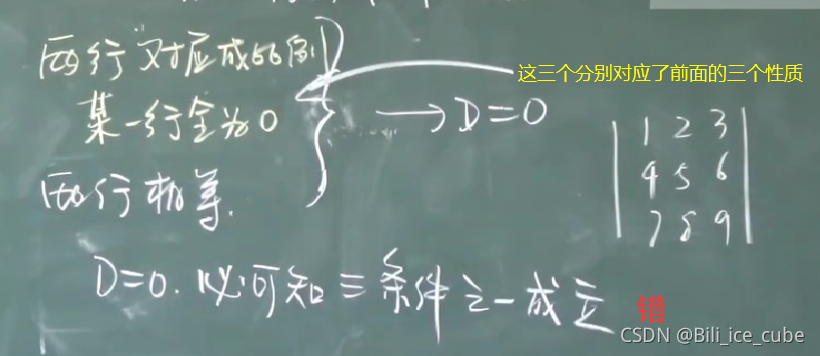 两行对应成比例
这三个分别对应了前面的三个性质
某一行全为0
→ D=0
两行相等.
1 2 3
4 5 6
7 8 9
D=0. 必可知三条件之一成立
错
CSDN @Bili_ice_cube